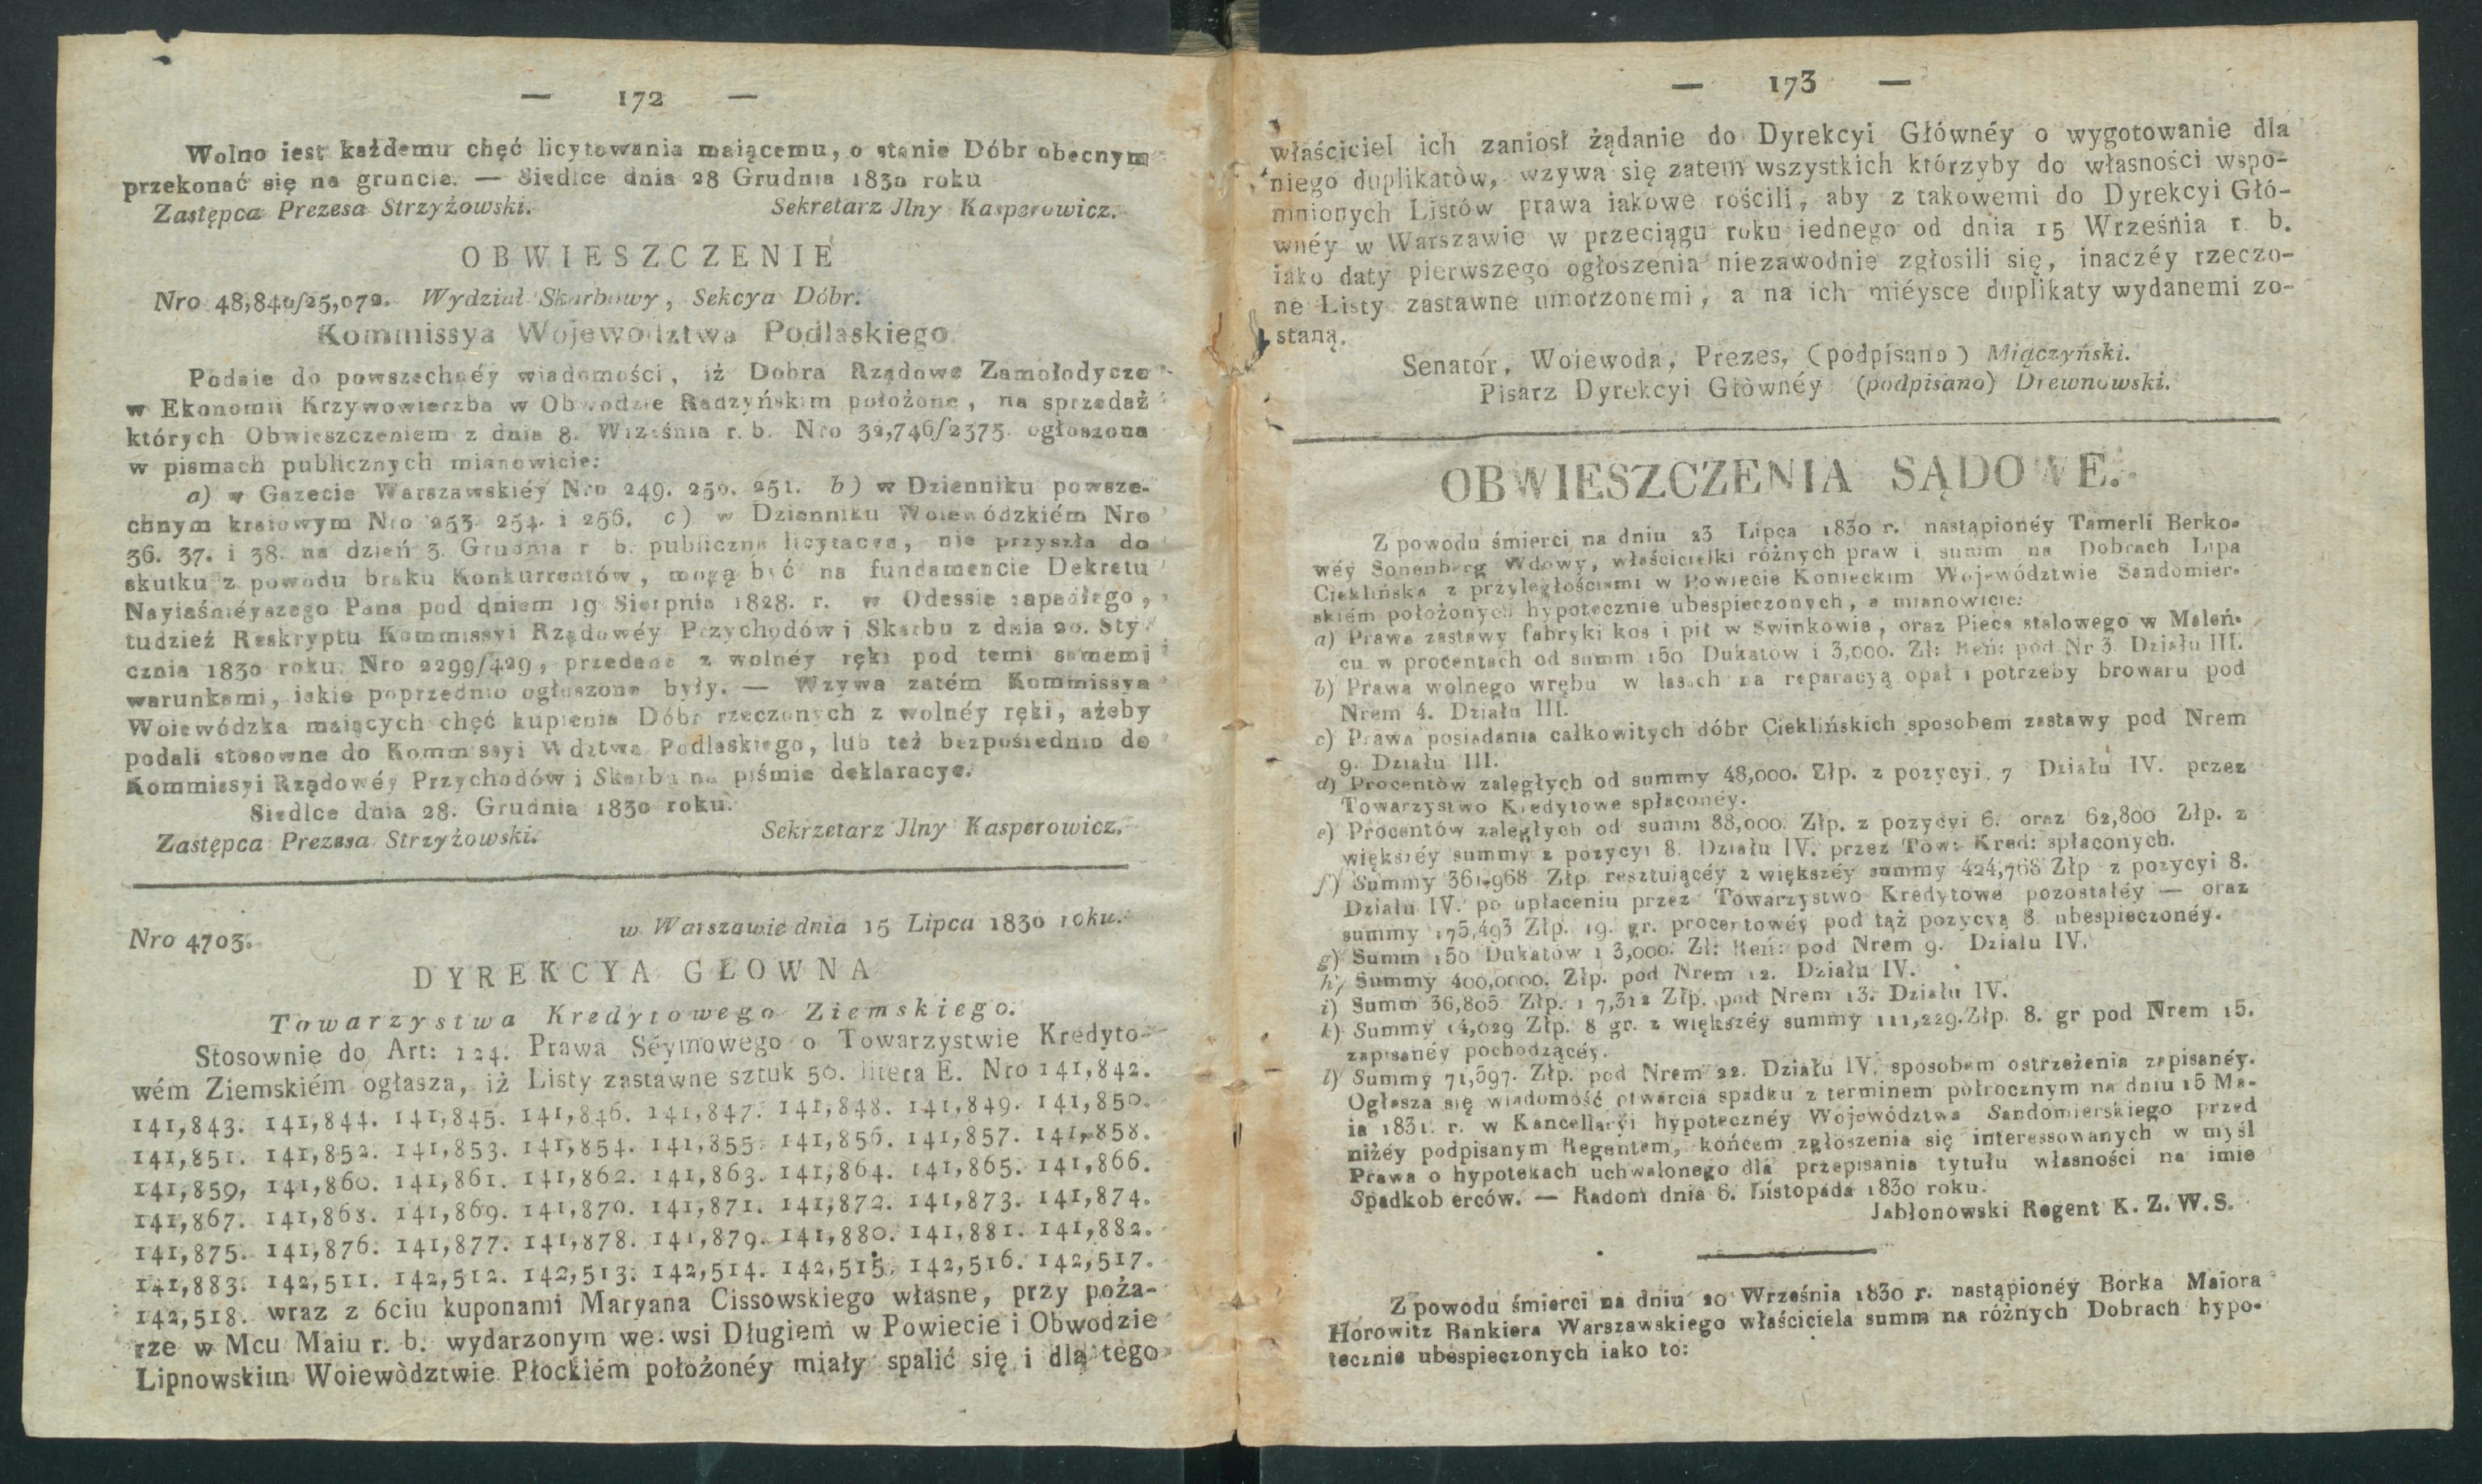 — 172 —
Wolno iest każdemu chęć licytowania maiącemu, o stanie Dóbr obecnym
przekonać się na gruncie. — Siedlce dnia 28 Grudnia 1830 roku
Zastępca Prezesa Strzyżowski. Sekretarz Jlny Kasperowicz.
OBWIESZCZENIE
Nro 48,840/25,072. Wydział Skarbowy, Sekcya Dóbr.
Kommissya Województwa Podlaskiego
Podaie do powszechnéy wiadomości, iż Dobra Rządowe Zamołodycze
w Ekonomii Krzywowierzba w Obwodzie Radzyńskim położone, na sprzedaż
których Obwieszczeniem z dnia 8. Września r. b. Nro 32,746/2375 ogłoszona
w pismach publicznych mianowicie:
a) w Gazecie Warszawskiéy Nro 249. 250. 251. b) w Dzienniku powsze-
chnym kraiowym Nro 253. 254. i 256. c) w Dzienniku Woiewódzkiém Nro
36. 37. i 38. na dzień 3. Grudnia r. b. publiczna licytacya, nie przyszła do
skutku z powodu braku Konkurrentów, mogą być na fundamencie Dekretu
Nayiaśniéyszego Pana pod dniem 19 Sierpnia 1828. r. w Odessie zapadłego,
tudzież Reskryptu Kommissyi Rządowéy Przychodów i Skarbu z dnia 20. Sty-
cznia 1830 roku. Nro 2299/429, przedane z wolnéy ręki pod temi samemi
warunkami, iakie poprzednio ogłoszone były. — Wzywa zatém Kommissya
Woiewódzka maiących chęć kupienia Dóbr rzeczonych z wolnéy ręki, ażeby
podali stosowne do Kommissyi Wdztwa Podlaskiego, lub też bezpośrednio do
Kommissyi Rządowéy Przychodów i Skarbu na piśmie deklaracye.
Siedlce dnia 28. Grudnia 1830 roku.
Zastępca Prezesa Strzyżowski. Sekrzetarz Jlny Kasperowicz.
Nro 4703. w Warszawie dnia 15 Lipca 1830 roku.
DYREKCYA GŁOWNA
Towarzystwa Kredytowego Ziemskiego.
Stosownie do Art: 124. Prawa Séymowego o Towarzystwie Kredyto-
wém Ziemskiém ogłasza, iż Listy zastawne sztuk 50. litera E. Nro 141,842.
141,843. 141,844. 141,845. 141,846. 141,847. 141,848. 141,849. 141,850.
141,851. 141,852. 141,853. 141,854. 141,855. 141,856. 141,857. 141,858.
141,859, 141,860. 141,861. 141,862. 141,863. 141,864. 141,865. 141,866.
141,867. 141,868. 141,869. 141,870. 141,871. 141,872. 141,873. 141,874.
141,875. 141,876. 141,877. 141,878. 141,879. 141,880. 141,881. 141,882.
141,883. 142,511. 142,512. 142,513. 142,514. 142,515. 142,516. 142,517.
142,518. wraz z 6ciu kuponami Maryana Cissowskiego własne, przy poża-
rze w Mcu Maiu r. b. wydarzonym we wsi Długiem w Powiecie i Obwodzie
Lipnowskim Woiewòdztwie Płockiém położonéy miały spalić się i dla tego
— 173 —
właściciel ich zaniosł żądanie do Dyrekcyi Głównéy o wygotowanie dla
niego duplikatòw, wzywa się zatem wszystkich którzyby do własności wspo-
mnionych Listów prawa iakowe rościli, aby z takowemi do Dyrekcyi Głó-
wnéy w Warszawie w przeciągu roku iednego od dnia 15 Września r. b.
iako daty pierwszego ogłoszenia niezawodnie zgłosili się, inaczéy rzeczo-
ne Listy zastawne umorzonemi, a na ich miéysce duplikaty wydanemi zo-
staną.
Senator, Woiewoda, Prezes, (podpisano) Miączyński.
Pisarz Dyrekcyi Głównéy (podpisano) Drewnowski.
OBWIESZCZENIA SĄDOWE.
Z powodu śmierci na dniu 23 Lipca 1830 r. nastąpionéy Tamerli Berko-
wéy Sonenberg Wdowy, właścicielki różnych praw i summ na Dobrach Lipa
Cieklińska z przyległościami w Powiecie Konieckim Województwie Sandomier-
skiém położonych hypotecznie ubespieczonych, a mianowicie:
a) Prawa zastawy fabryki kos i pił w Swinkowie, oraz Pieca stalowego w Maleń-
cu w procentach od summ 150 Dukatów i 3,000. Zł: Reń: pod Nr 3. Działu III.
b) Prawa wolnego wrębu w lasach na reparacyą opał i potrzeby browaru pod
Nrem 4. Działu III.
c) Prawa posiadania całkowitych dóbr Cieklińskich sposobem zastawy pod Nrem
9. Działu III.
d) Procentòw zaległych od summy 48,000. Złp. z pozycyi 7 Działu IV. przez
Towarzystwo Kredytowe spłaconéy.
e) Procentów zaległych od summ 88,000. Złp. z pozycyi 6. oraz 62,800 Złp. z
większéy summy z pozycyi 8. Działu IV. przez Tow: Kred: spłaconych.
f) Summy 361,968 Złp. resztuiącéy z większéy summy 424,768 Złp z pozycyi 8.
Działu IV. po upłaceniu przez Towarzystwo Kredytowe pozostałéy — oraz
summy 175,493 Złp. 19. gr. procentowéy pod tąż pozycyą 8 ubespieczonéy.
g) Summ 150 Dukatów i 3,000. Zł: Reń: pod Nrem 9. Działu IV.
h) Summy 400,0000. Złp. pod Nrem 12. Działu IV.
i) Summ 36,805 Złp. i 7,312 Złp. pod Nrem 13. Działu IV.
k) Summy 14,029 Złp. 8 gr. z większéy summy 111,229.Złp. 8. gr pod Nrem 15.
zapisanéy pochodzącéy.
l) Summy 71,597. Złp. pod Nrem 22. Działu IV. sposobem ostrzeżenia zapisanéy.
Ogłasza się wiadomość otwarcia spadku z terminem półrocznym na dniu 15 Ma-
ia 1831. r. w Kancellaryi hypotecznéy Województwa Sandomierskiego przed
niżéy podpisanym Regentem, końcem zgłoszenia się interessowanych w myśl
Prawa o hypotekach uchwalonego dla przepisania tytułu własności na imie
Spadkob erców. — Radom dnia 6. Listopada 1830 roku.
Jabłonowski Regent K. Z. W. S.
Z powodu śmierci na dniu 20 Września 1830 r. nastąpionéy Borka Maiora
Horowitz Bankiera Warszawskiego właściciela summ na różnych Dobrach hypo-
tecznie ubespieczonych iako to: